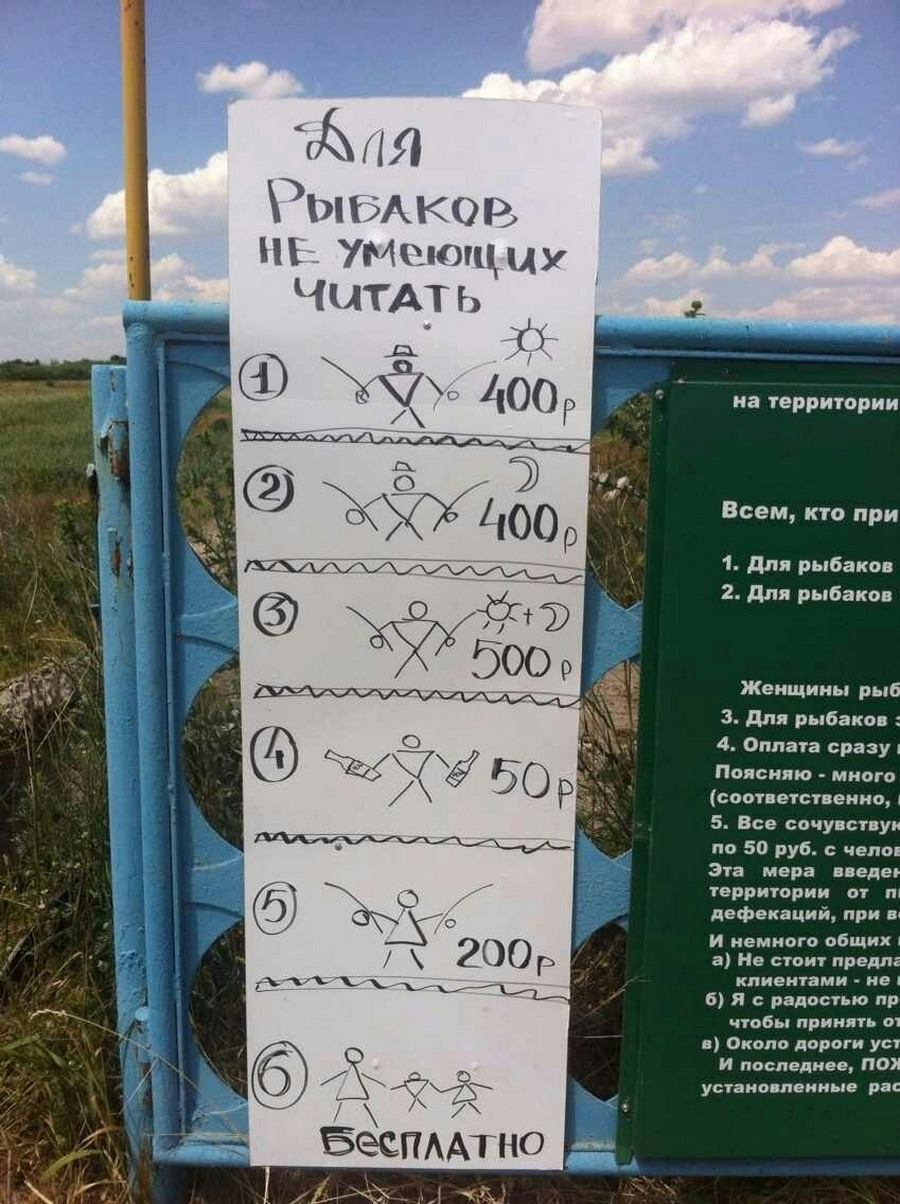 Для
Рыбаков
не умеющих
читать
1 400р
2 400р
3 + 500р
4 50р
5 200р
6
Бесплатно
на территории
Всем, кто при
1. Для рыбаков
2. Для рыбаков
Женщины рыб
3. Для рыбаков
4. Оплата сразу
Поясняю - много
(соответственно,
5. Все сочувствую
по 50 руб. с челов
Эта мера введен
территории от
дефекаций, при
И немного общих
а) Не стоит предла
клиентами - не
б) Я с радостью пр
чтобы принять от
в) Около дороги уст
И последнее, ПОЖ
установленные рас